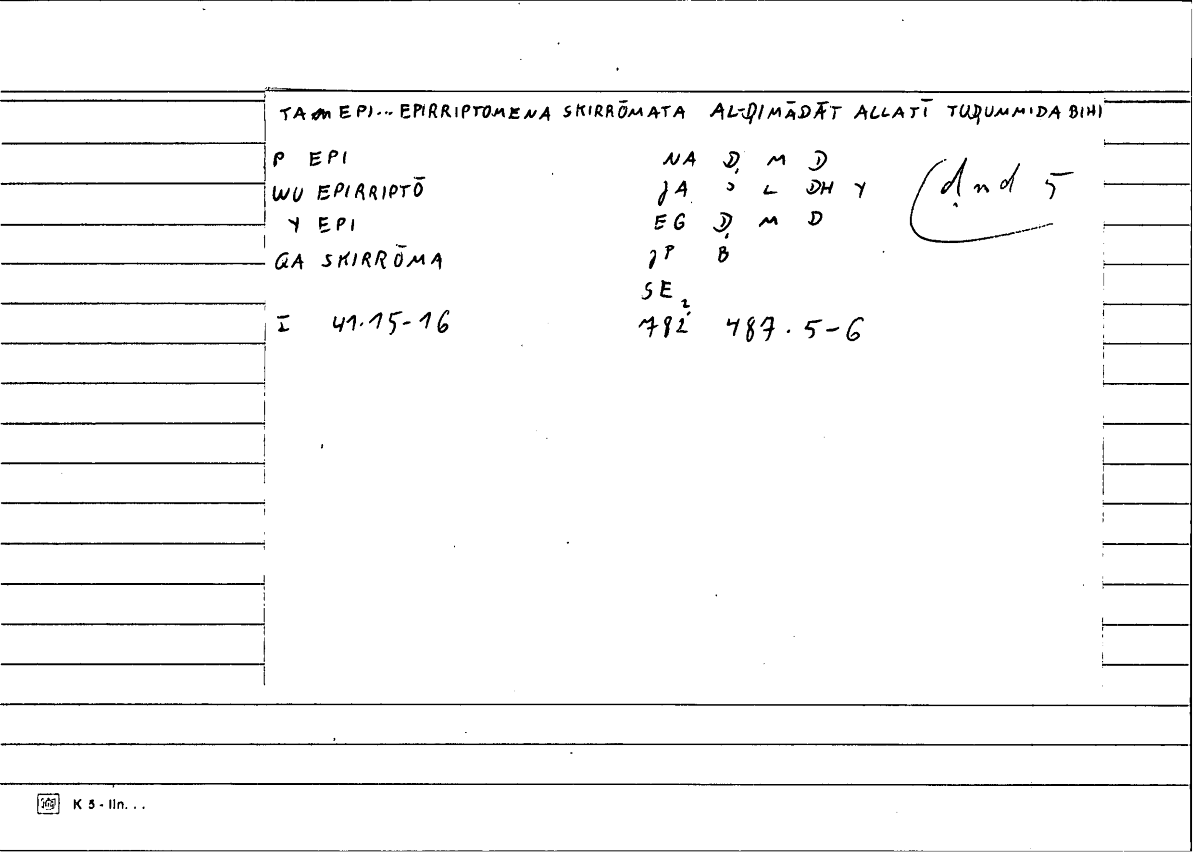 TA M EPI... EPIRRIPTOMENA SKIRRŌMATA AL-ḌIMĀDĀT ALLATĪ TUḌUMMIDA BIHI
P EPI NA Ḍ M D
WU EPIRRIPTŌ JA ʾ L DH Y
Y EPI EG Ḍ M D
QA SKIRRŌMA JP B
SE₂
I 41.15-16 782 487.5-6
ḍmd 5
K 5 - lin...